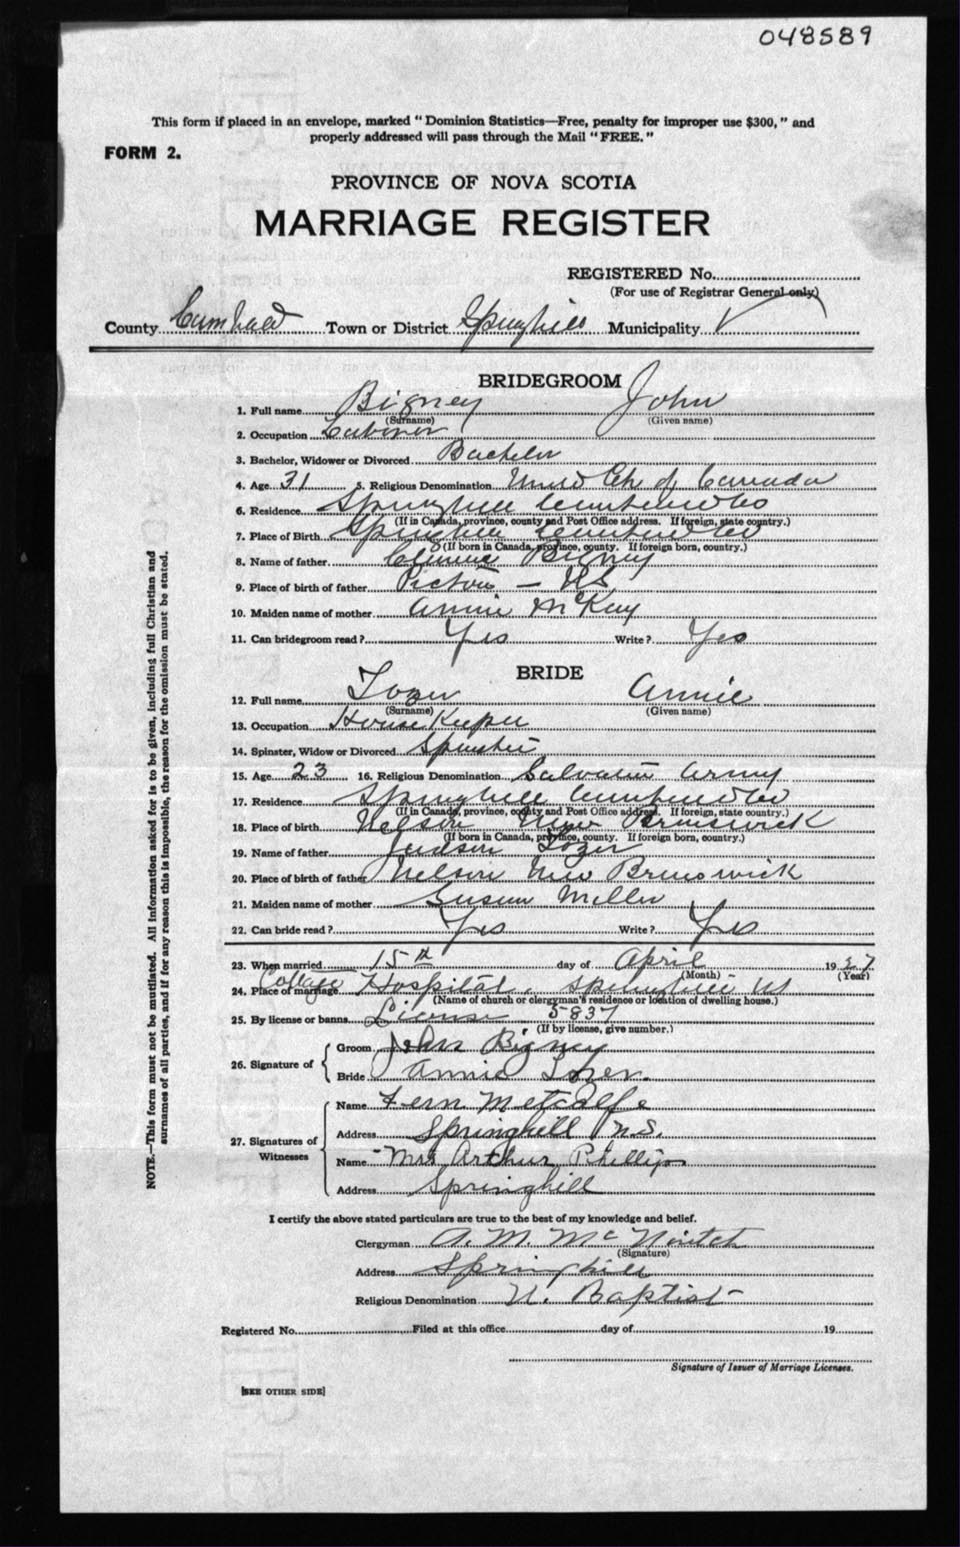 048589
This form if placed in an envelope, marked "Dominion Statistics—Free, penalty for improper use $300," and
properly addressed will pass through the Mail "FREE."
FORM 2.
PROVINCE OF NOVA SCOTIA
MARRIAGE REGISTER
REGISTERED No.
(For use of Registrar General only)
County Town or District Springhill Municipality
BRIDEGROOM
1. Full name Bigney John
(Surname) (Given name)
2. Occupation Laborer
3. Bachelor, Widower or Divorced Bachelor
4. Age 31 5. Religious Denomination United Ch. of Canada
6. Residence Springhill Cumberland Co
(If in Canada, province, county and Post Office address. If foreign, state country.)
7. Place of Birth Springhill Cumberland Co
(If born in Canada, province, county. If foreign born, country.)
8. Name of father Clarence Bigney
9. Place of birth of father Pictou — NS
10. Maiden name of mother Annie McKay
11. Can bridegroom read? Yes Write? Yes
BRIDE
12. Full name Tozer Annie
(Surname) (Given name)
13. Occupation House Keeper
14. Spinster, Widow or Divorced Spinster
15. Age 23 16. Religious Denomination Salvation Army
17. Residence Springhill Cumberland Co
(If in Canada, province, county and Post Office address. If foreign, state country.)
18. Place of birth Nelson New Brunswick
(If born in Canada, province, county. If foreign born, country.)
19. Name of father Judson Tozer
20. Place of birth of father Nelson New Brunswick
21. Maiden name of mother Susan Miller
22. Can bride read? Yes Write? Yes
23. When married 15th day of April 1937
(Month) (Year)
24. Place of marriage Cottage Hospital, Springhill NS
(Name of church or clergyman's residence or location of dwelling house.)
25. By license or banns License 5837
(If by license, give number.)
26. Signature of
Groom John Bigney
Bride Annie Tozer.
27. Signatures of Witnesses
Name Fern Metcalfe
Address Springhill N.S.
Name Mrs Arthur Phillips
Address Springhill
I certify the above stated particulars are true to the best of my knowledge and belief.
Clergyman A. M. McNintch
(Signature)
Address Springhill
Religious Denomination U. Baptist
Registered No. Filed at this office day of 19
Signature of Issuer of Marriage Licenses.
[SEE OTHER SIDE]
NOTE.—This form must not be mutilated. All information asked for is to be given, including full Christian and
surnames of all parties, and if for any reason this is impossible, the reason for the omission must be stated.